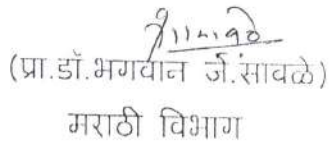 (प्रा.डॉ.भगवान जे.सावळे)
मराठी विभाग